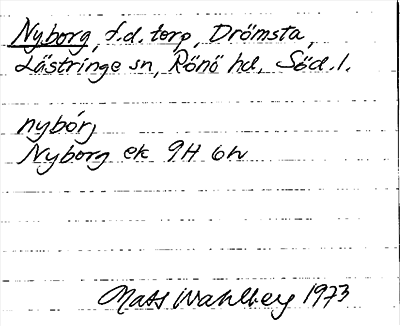 Nyborg, f.d. torp, Drömsta,
Lästringe sn, Rönö hd, Söd.l.
nybórj
Nyborg ek 9H 6h
Mats Wahlberg 1973